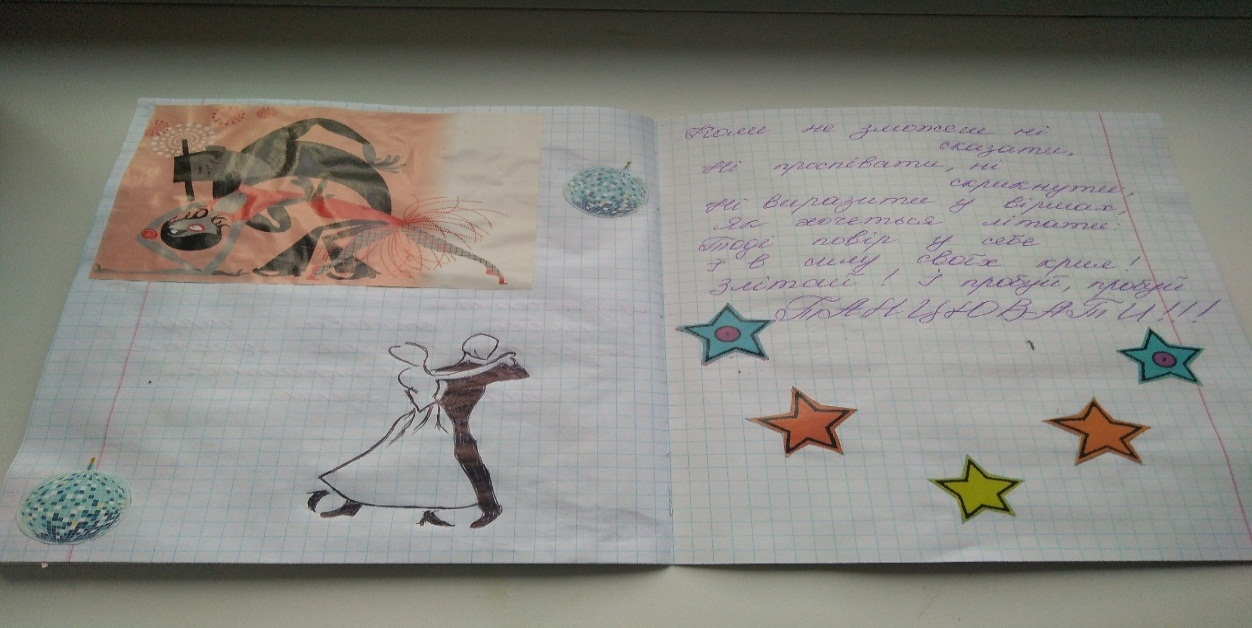 Коли не зможеш ні
сказати,
Ні проспівати, ні
скрикнути,
Ні виразити у віршах,
як хочеться літати:
Тоді повір у себе
і в силу своїх крил!
Злітай! І пробуй, пробуй
ТАНЦЮВАТИ!!!